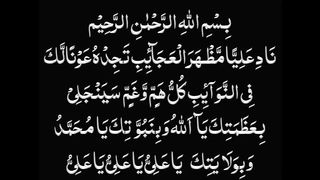 بِسْمِ اللهِ الرَّحْمٰنِ الرَّحِيْمِ
نَادِ عَلِيًّا مَّظْهَرَ الْعَجَآئِبِ تَجِدْهُ عَوْنًا لَّكَ
فِي النَّوَآئِبِ كُلُّ هَمٍّ وَّغَمٍّ سَيَنْجَلِيْ
بِعَظَمَتِكَ يَآ اَللهُ وَبِنُبُوَّتِكَ يَا مُحَمَّدُ
وَبِوِلَايَتِكَ يَا عَلِيُّ يَا عَلِيُّ يَا عَلِيُّ